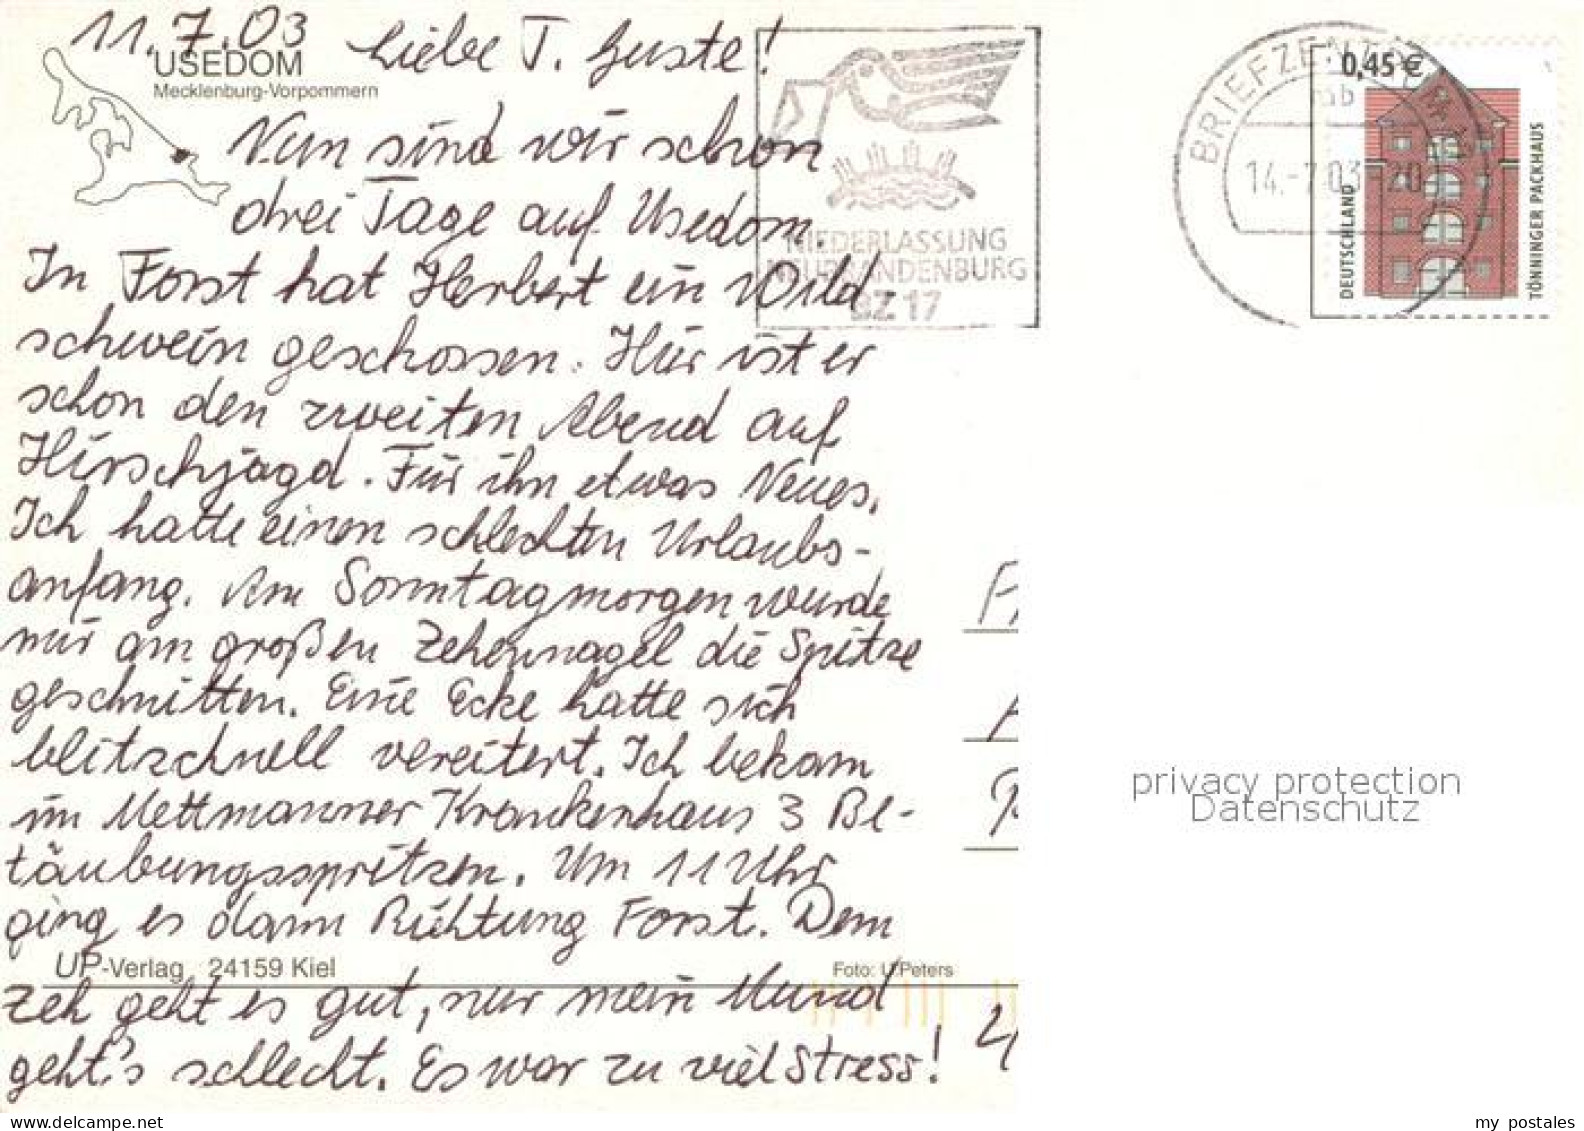 11.7.03 Liebe T. Guste!
USEDOM
Mecklenburg-Vorpommern
Nun sind wir schon
drei Tage auf Usedom.
In Forst hat Herbert ein Wild-
schwein geschossen. Hier ist er
schon den zweiten Abend auf
Hirschjagd. Für ihn etwas Neues.
Ich hatte einen schlechten Urlaubs-
anfang. Am Sonntagmorgen wurde
mir am großen Zehennagel die Spitze
geschnitten. Eine Ecke hatte sich
blitzschnell vereitert. Ich bekam
im Mettmanner Krankenhaus 3 Be-
täubungsspritzen. Um 11 Uhr
ging es dann Richtung Forst. Dem
UP-Verlag 24159 Kiel
Foto: U. Peters
Zeh geht es gut, nur mein Mund
geht's schlecht. Es war zu viel Stress!
NIEDERLASSUNG
NEUBRANDENBURG
BZ 17
BRIEFZENTRUM
14.-7.03
0,45 €
DEUTSCHLAND
TÖNNINGER PACKHAUS
privacy protection
Datenschutz
delcampe.net
my_postales